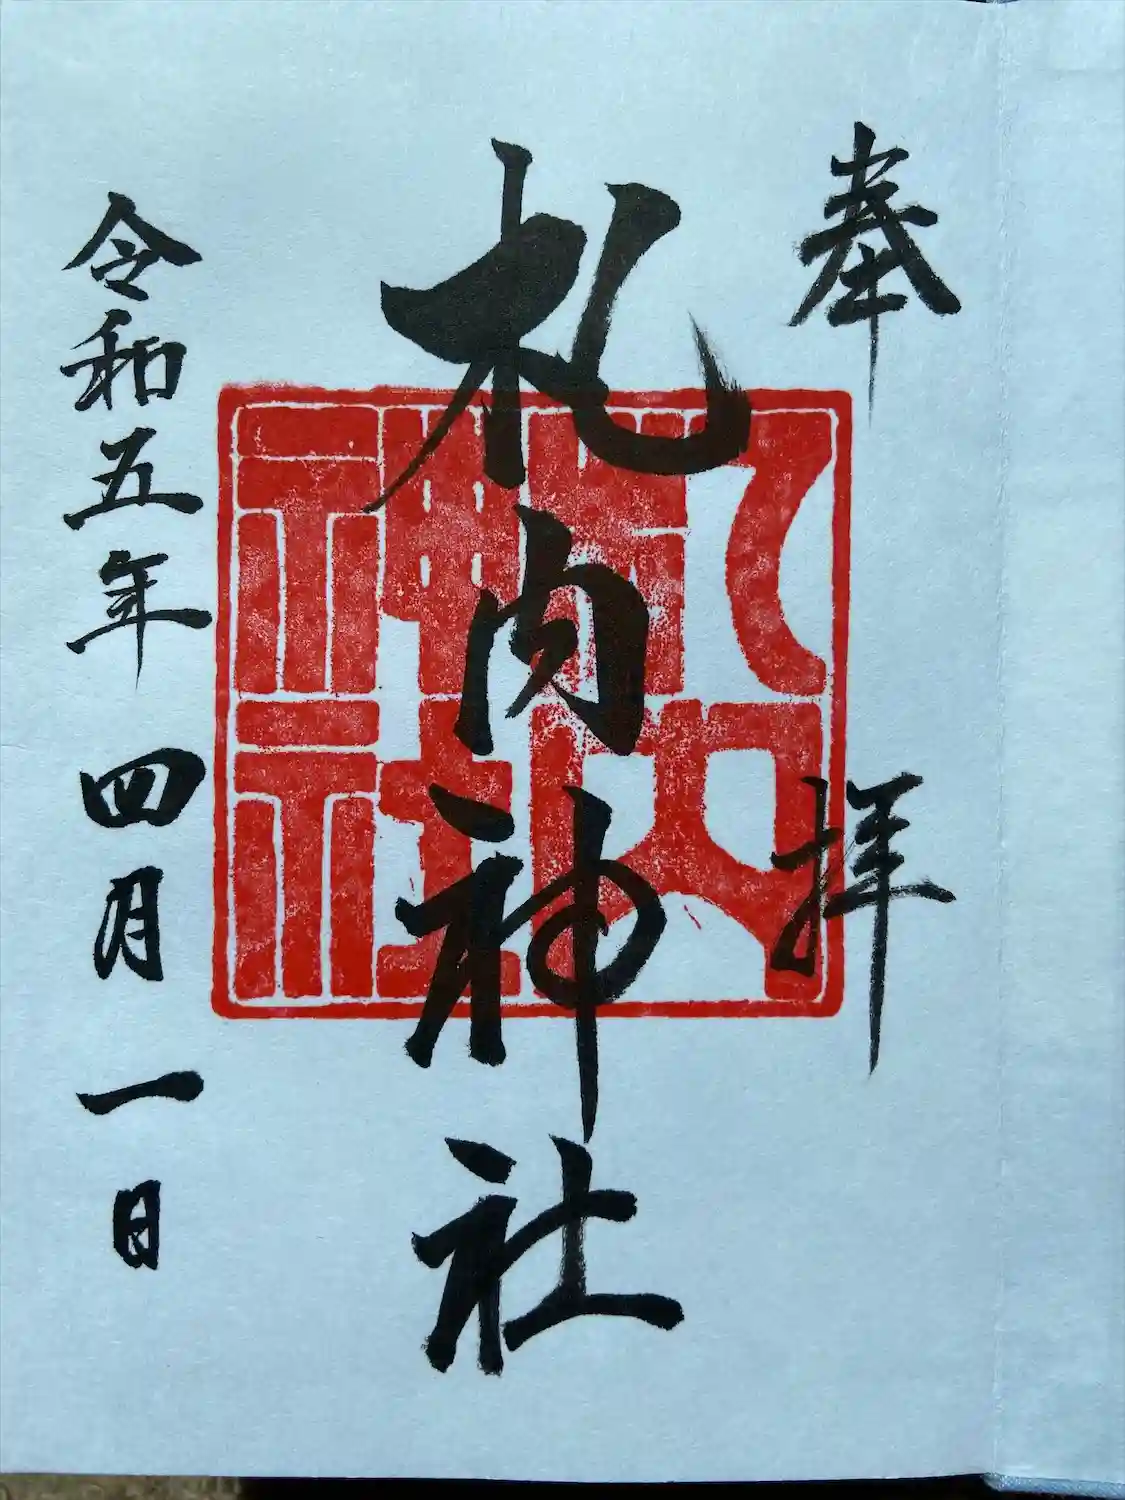 奉拝
札内神社
札内神社
令和五年四月一日